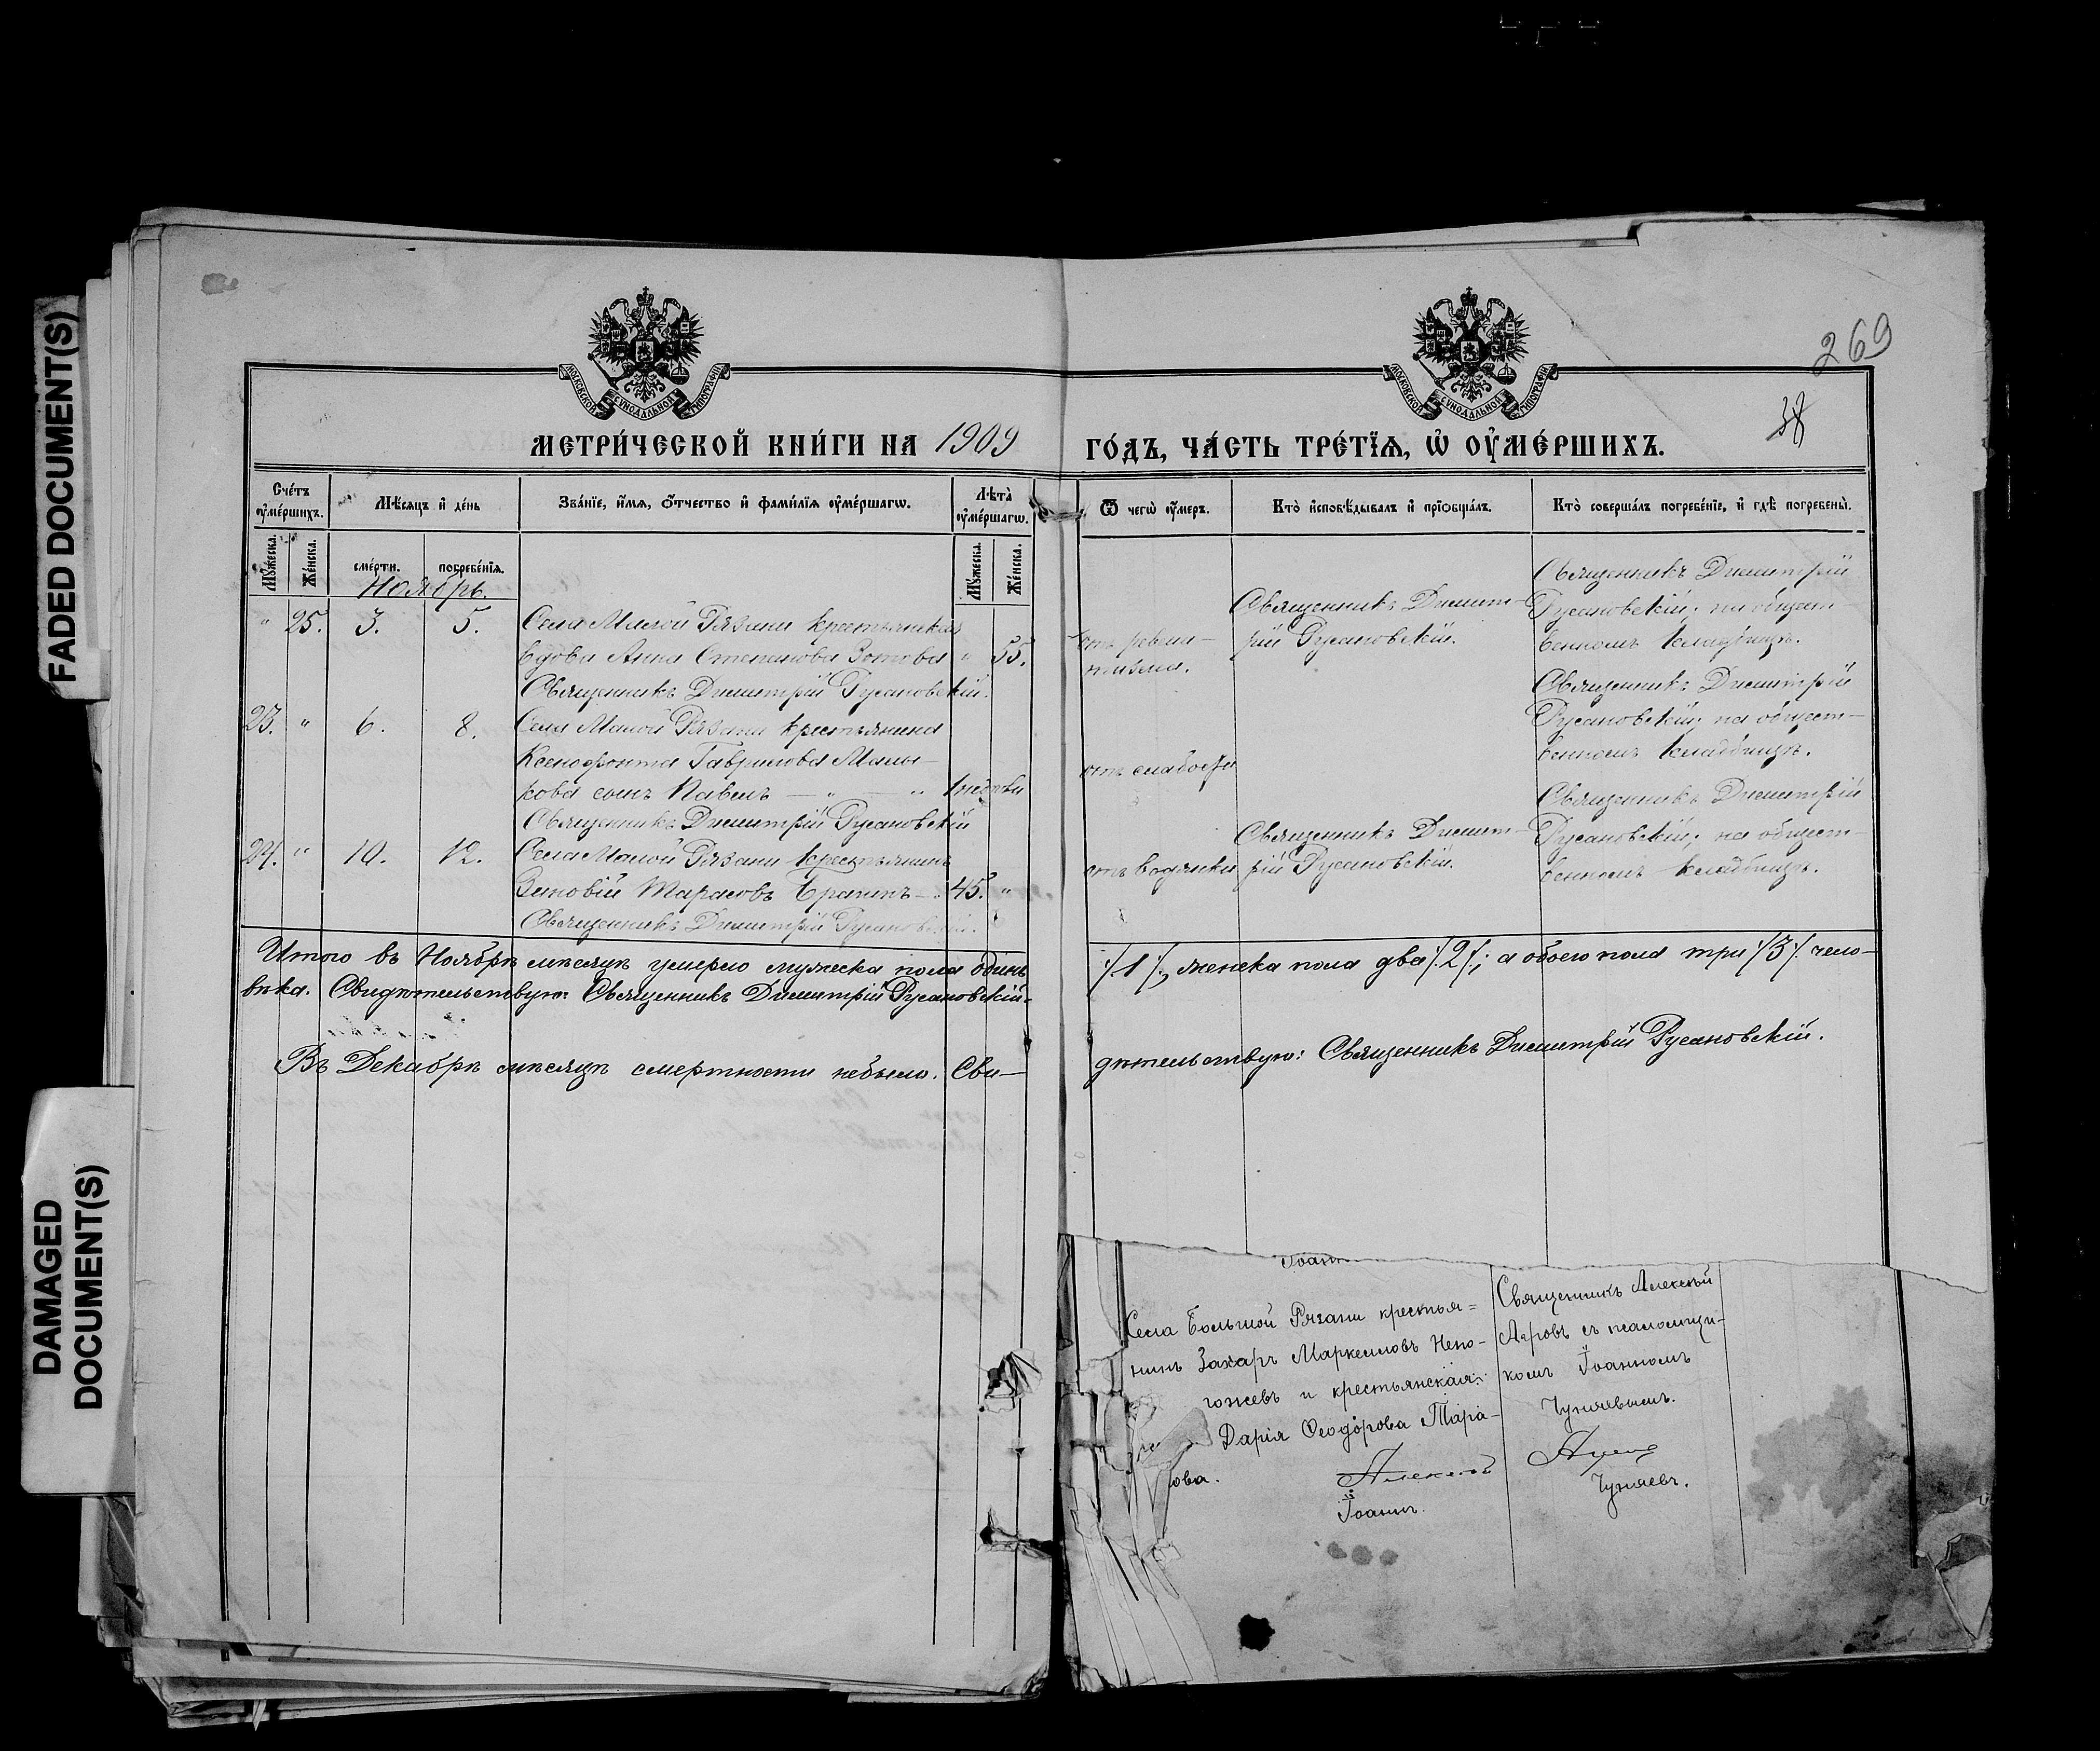 FADED DOCUMENT(S)
DAMAGED
DOCUMENT(S)
269
МОСКОВСКОЙ СѴНОДАЛЬНОЙ ТИПОГРАФІИ
МОСКОВСКОЙ СѴНОДАЛЬНОЙ ТИПОГРАФІИ
МЕТРИ́ЧЕСКОЙ КНИ́ГИ НА 1909
ГО́ДЪ, ЧА́СТЬ ТРЕ́ТІѦ, Ѡ ОУ҆МЕ́РШИХЪ.
Сче́тъ оу҆ме́ршихъ.
Мѣ́сяцъ и҆ де́нь
Зва́нїе, и҆́мѧ, ѻ҆́тчество и҆ фами́лїѧ оу҆ме́ршагѡ.
Лѣ́та̀ оу҆ме́ршагѡ.
Ѿ чегѡ̀ оу҆́меръ.
Кто̀ и҆сповѣ́дывалъ и҆ прїѡбща́лъ.
Кто̀ соверша́лъ погребе́нїе, и҆ гдѣ̀ погребены̀.
Мꙋ́жеска.
Же́нска.
сме́рти.
погребе́нїѧ.
Мꙋ́жеска.
Же́нска.
Ноябрь.
" 25. 3. 5. Села Малой Рязани крестьянская
вдова Анна Степанова Зотова " 55.
Священникъ Димитрій Русановскій.
отъ ревма-
тизма.
Священникъ Димит-
рій Русановскій.
Священникъ Димитрій
Русановскій; на общест-
венномъ кладбищѣ.
23. " 6. 8. Села Малой Рязани крестьянина
Ксенофонта Гаврилова Малы-
кова сынъ Павелъ — " — " 1 недѣли
Священникъ Димитрій Русановскій
отъ слабости
Священникъ Димитрій
Русановскій; на общест-
венномъ кладбищѣ.
24. " 10. 12. Села Малой Рязани крестьянинъ
Зиновій Тарасовъ 45. "
Священникъ Димитрій Русановскій.
отъ водянки
Священникъ Димит-
рій Русановскій.
Священникъ Димитрій
Русановскій; на общест-
венномъ кладбищѣ.
Итого въ Ноябрѣ мѣсяцѣ умерло мужеска пола одинъ
/1/, женска пола два /2/; а обоего пола три /3/ чело-
вѣка. Свидѣтельствую: Священникъ Димитрій Русановскій.
Въ Декабрѣ мѣсяцѣ смертности небыло. Сви-
дѣтельствую: Священникъ Димитрій Русановскій.
Іоанн
Села Большой Рязани крестья=
нинъ Захаръ Маркелловъ Непо-
гожевъ и крестьянская
Дарія Ѳеодорова Тара-
ова.
Алексій
Іоаннъ.
Священникъ Алексѣй
Агровъ съ псаломщи-
комъ Іоанномъ
Чуняевымъ.
Чуняевъ.